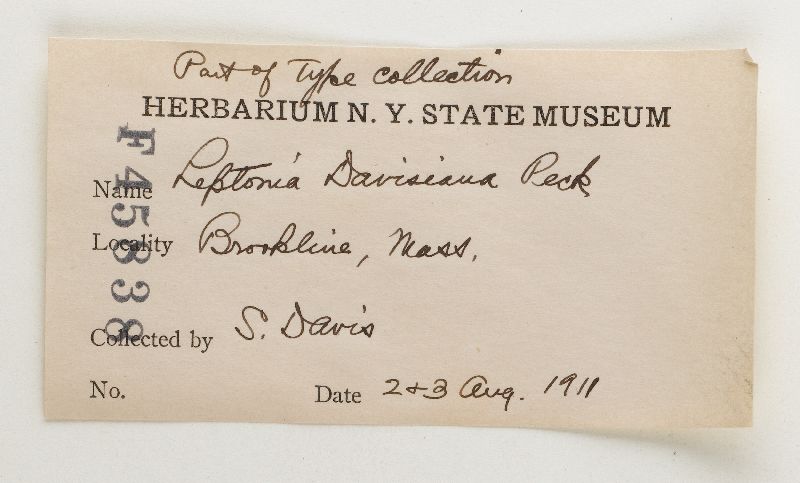 Part of Type collection
HERBARIUM N. Y. STATE MUSEUM
F45838
Name Leptonia Davisiana Peck
Locality Brookline, Mass.
Collected by S. Davis
No. Date 2+3 Aug. 1911